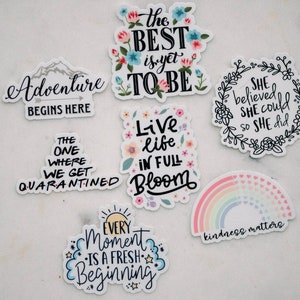 the
BEST
is yet
TO BE
Adventure
BEGINS HERE
SHE
believed
SHE COULD
so SHE did
THE
ONE
WHERE
WE GET
QUARANTINED
LIVE
life
IN FULL
Bloom
kindness matters
EVERY
Moment
IS A FRESH
Beginning